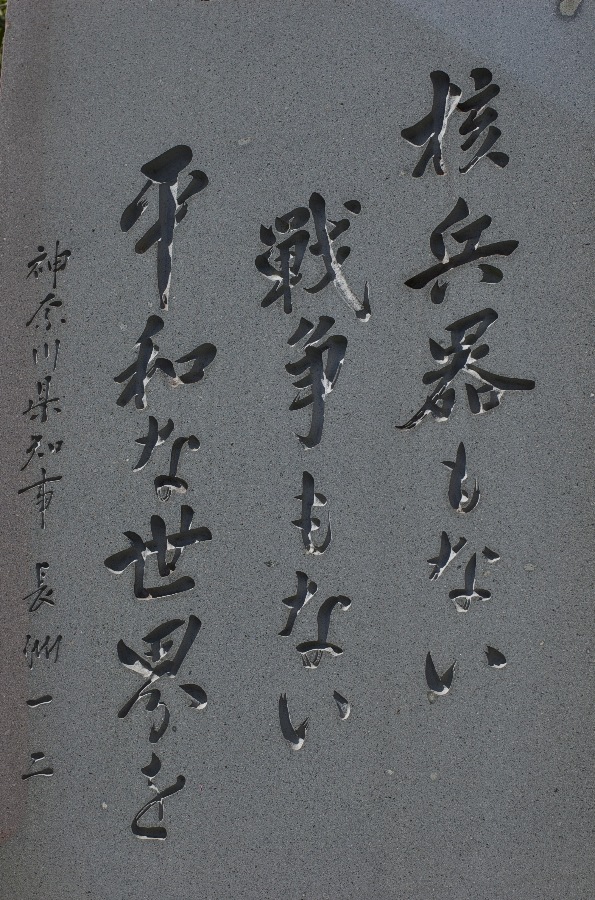 核兵器もない
戦争もない
平和な世界を
神奈川県知事 長洲一二